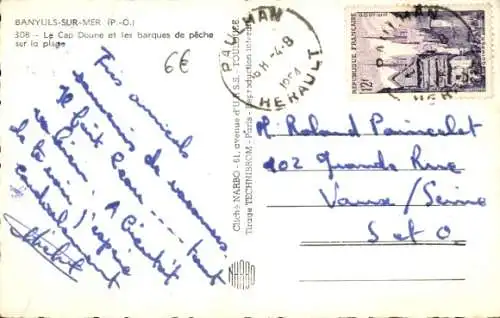 BANYULS-SUR-MER (P.-O.)
308 - Le Cap Doune et les barques de pêche
sur la plage
6€
Très amicals
souvenirs de vacances
Il fait beau --- tout
va bien. A bientôt
j'espère
cordialement
Michel
Cliché NARBO - 61, avenue d'U.R.S.S. TOULOUSE
Tirage TECHNISSOM - Paris - Reproduction interdite
NARBO
PAULHAN
6H -4-8
1954
HERAULT
REPUBLIQUE FRANÇAISE
12F
M. Roland Painvelet
102 Grande Rue
Vaux/Seine
S et O.